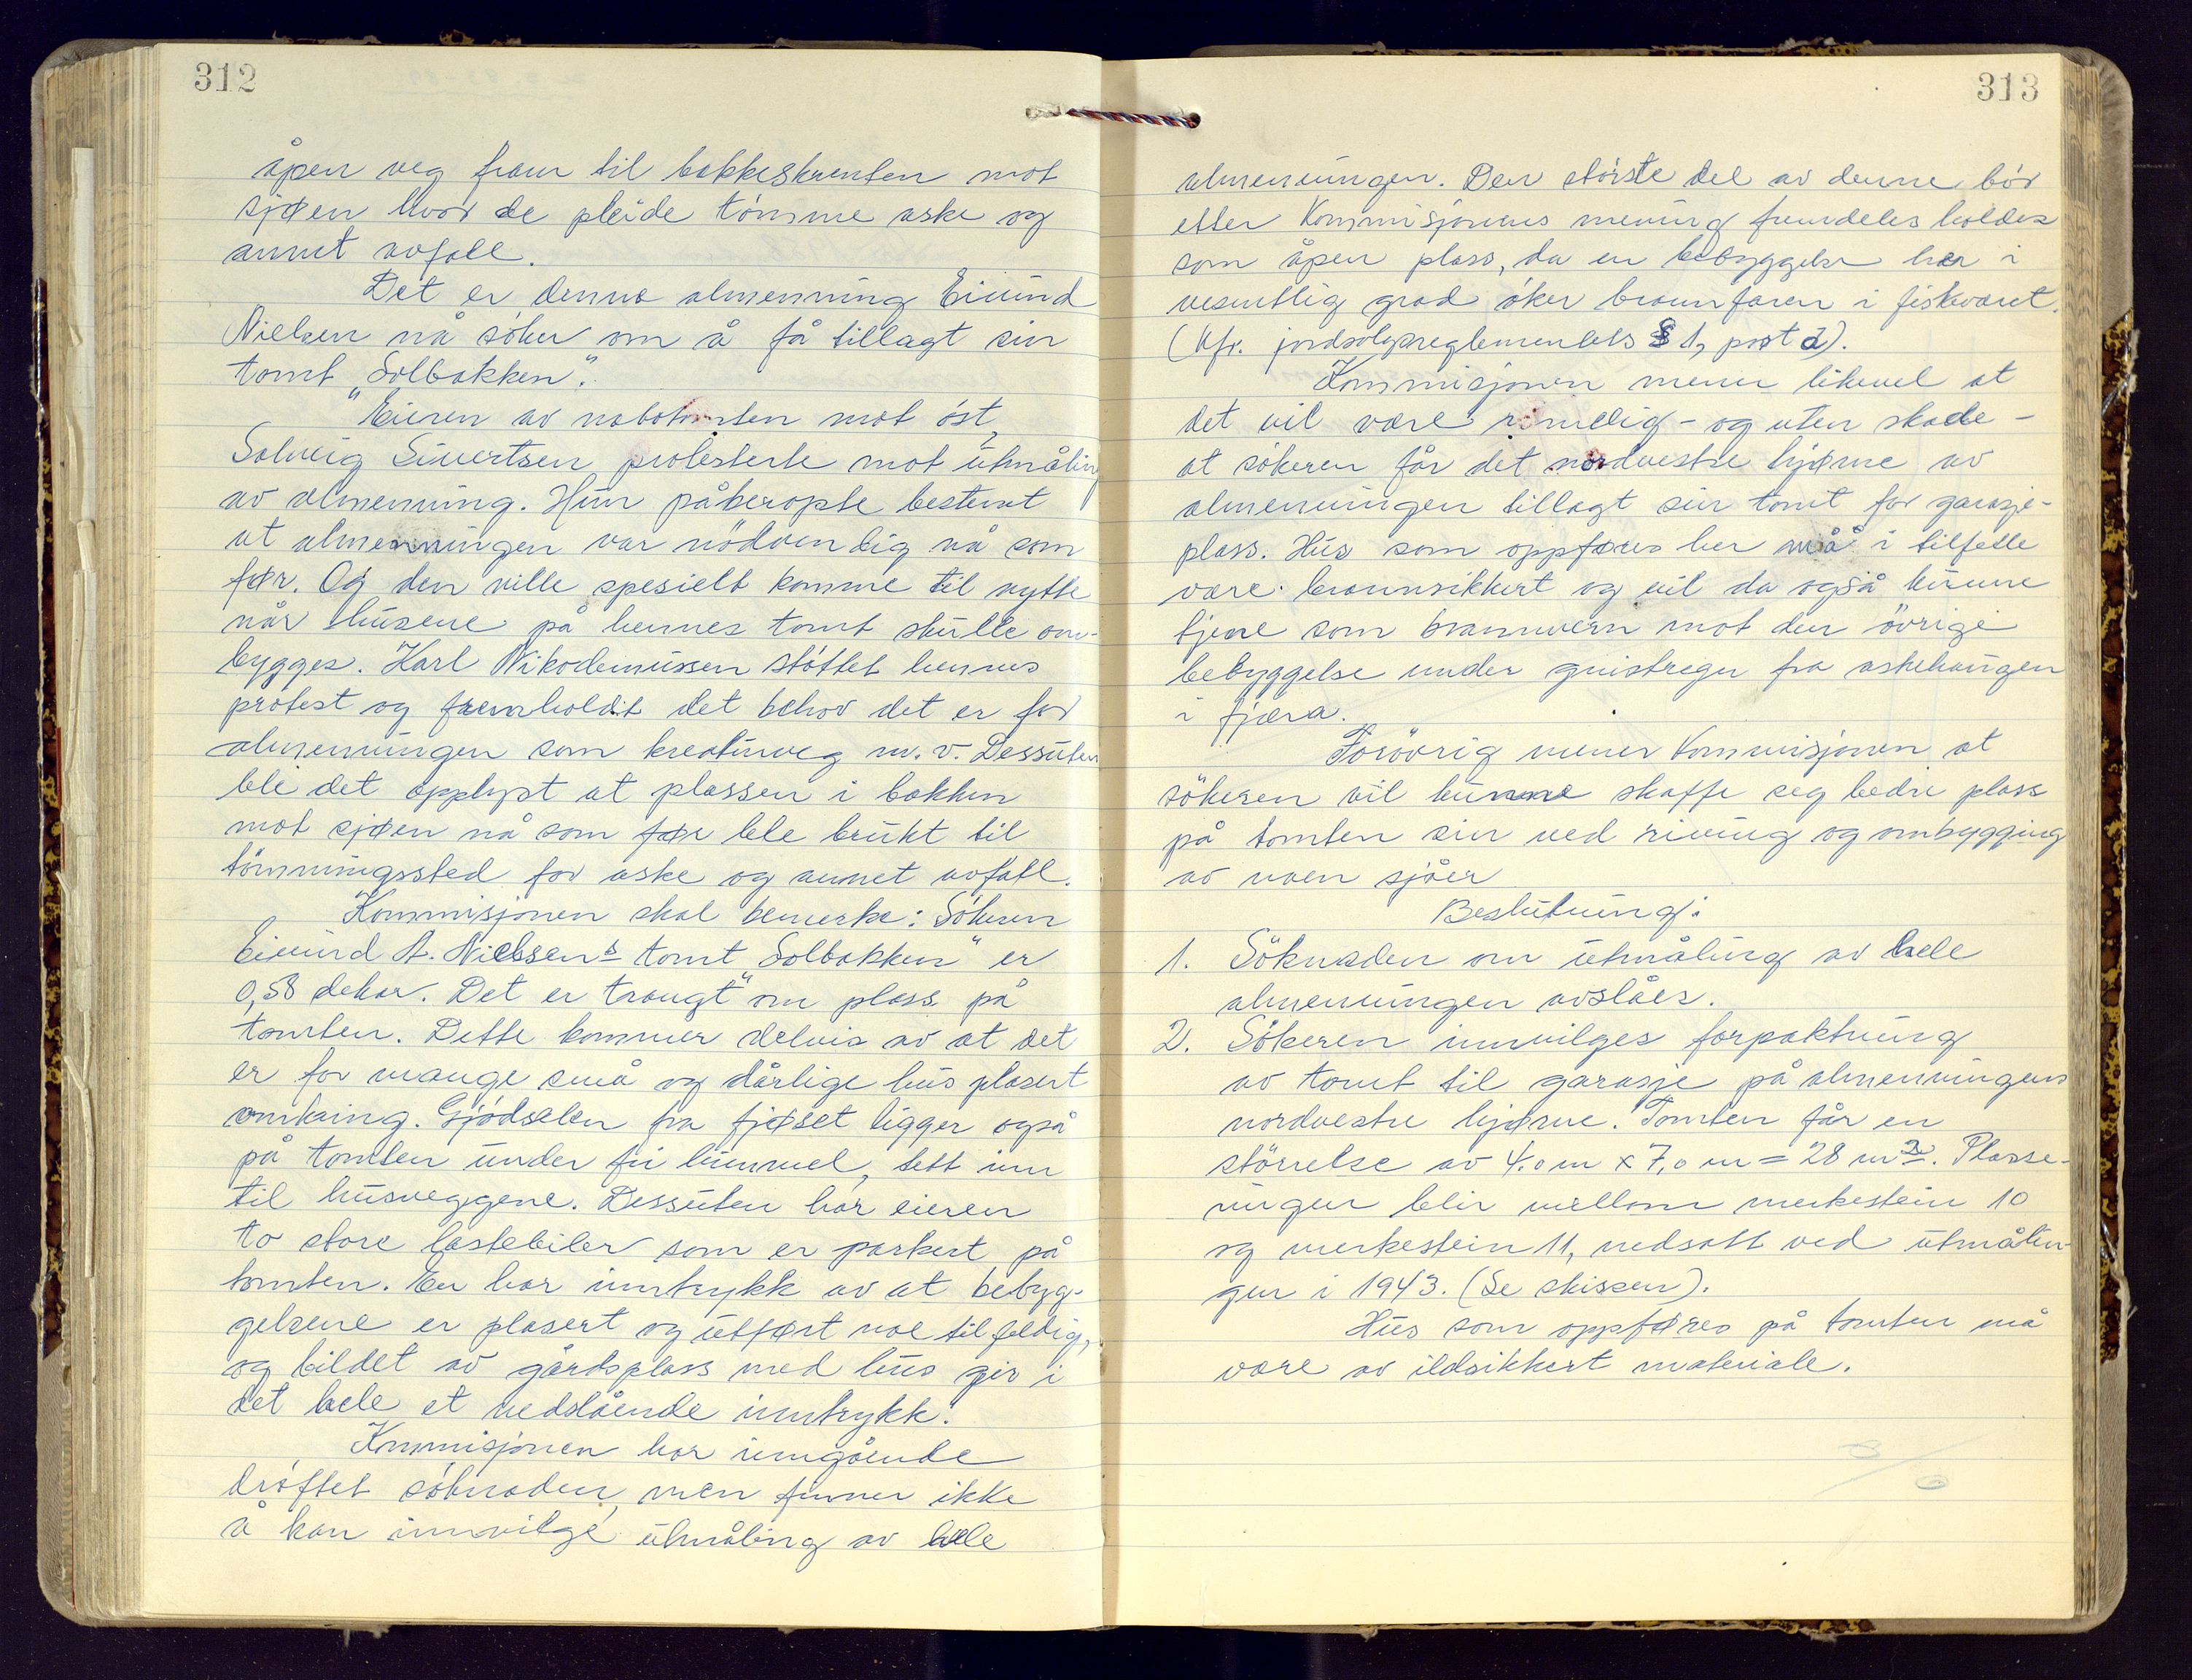 312
åpen veg fram til bakkeskrenten mot
sjøen hvor de pleide tömme aske og
annet avfall.
Det er denne almenning Eivind
Nielsen nå söker om å få tillagt sin
tomt „Solbakken".
Eieren av nabotomten mot öst,
Solveig Sivertsen protesterte mot utmåling
av almenning. Hun påberopte bestemt
at almenningen var nödvendig nå som
før. Og den ville spesielt komme til nytte
når husene på hennes tomt skulle om-
bygges. Karl Nikodemussen stöttet hennes
protest og fremholdt det behov det er for
almenningen som kreaturveg m.v. Dessuten
ble det opplyst at plassen i bakken
mot sjøen nå som før ble brukt til
tömmingssted for aske og annet avfall.
Kommisjonen skal bemerke: Sökeren
Eivind A. Nielsens tomt „Solbakken" er
0,58 dekar. Det er trangt om plass på
tomten. Dette kommer delvis av at det
er for mange små og dårlige hus plasert
omkring. Gjödselen fra fjøset ligger også
på tomten under fri himmel, tett inn
til husveggene. Dessuten har eieren
to store lastebiler som er parkert på
tomten. En har inntrykk av at bebyg-
gelsene er plasert og utført noe tilfeldig,
og bildet av gårdsplass med hus gir i
det hele et nedslående inntrykk.
Kommisjonen har inngående
dröftet söknaden, men finner ikke
å kan innvilge utmåling av hele
313
almenningen. Den störste del av denne bör
etter Kommisjonens mening fremdeles holdes
som åpen plass, da en bebyggelse her i
vesentlig grad öker brannfaren i fiskeværet.
(Kfr. jordsalgsreglementets § 1, post 2).
Kommisjonen mener likevel at
det vil være rimelig - og uten skade -
at sökeren får det nordvestre hjørne av
almenningen tillagt sin tomt for garasje-
plass. Hus som oppføres her må i tilfelle
være brannsikkert og vil da også kunne
tjene som brannvern mot den övrige
bebyggelse under gnistregn fra askehaugen
i fjæra.
Forövrig mener Kommisjonen at
sökeren vil kunne skaffe seg bedre plass
på tomten sin ved riving og ombygging
av noen sjåer
Beslutning:
1. Söknaden om utmåling av hele
almenningen avslåes.
2. Sökeren innvilges forpaktning
av tomt til garasje på almenningens
nordvestre hjørne. Tomten får en
störrelse av 4.0 m x 7,0 m = 28 m2. Plasse-
ringen blir mellom merkestein 10
og merkestein 11, nedsatt ved utmålin-
gen i 1943. (Se skissen).
Hus som oppføres på tomten må
være av ildsikkert materiale.